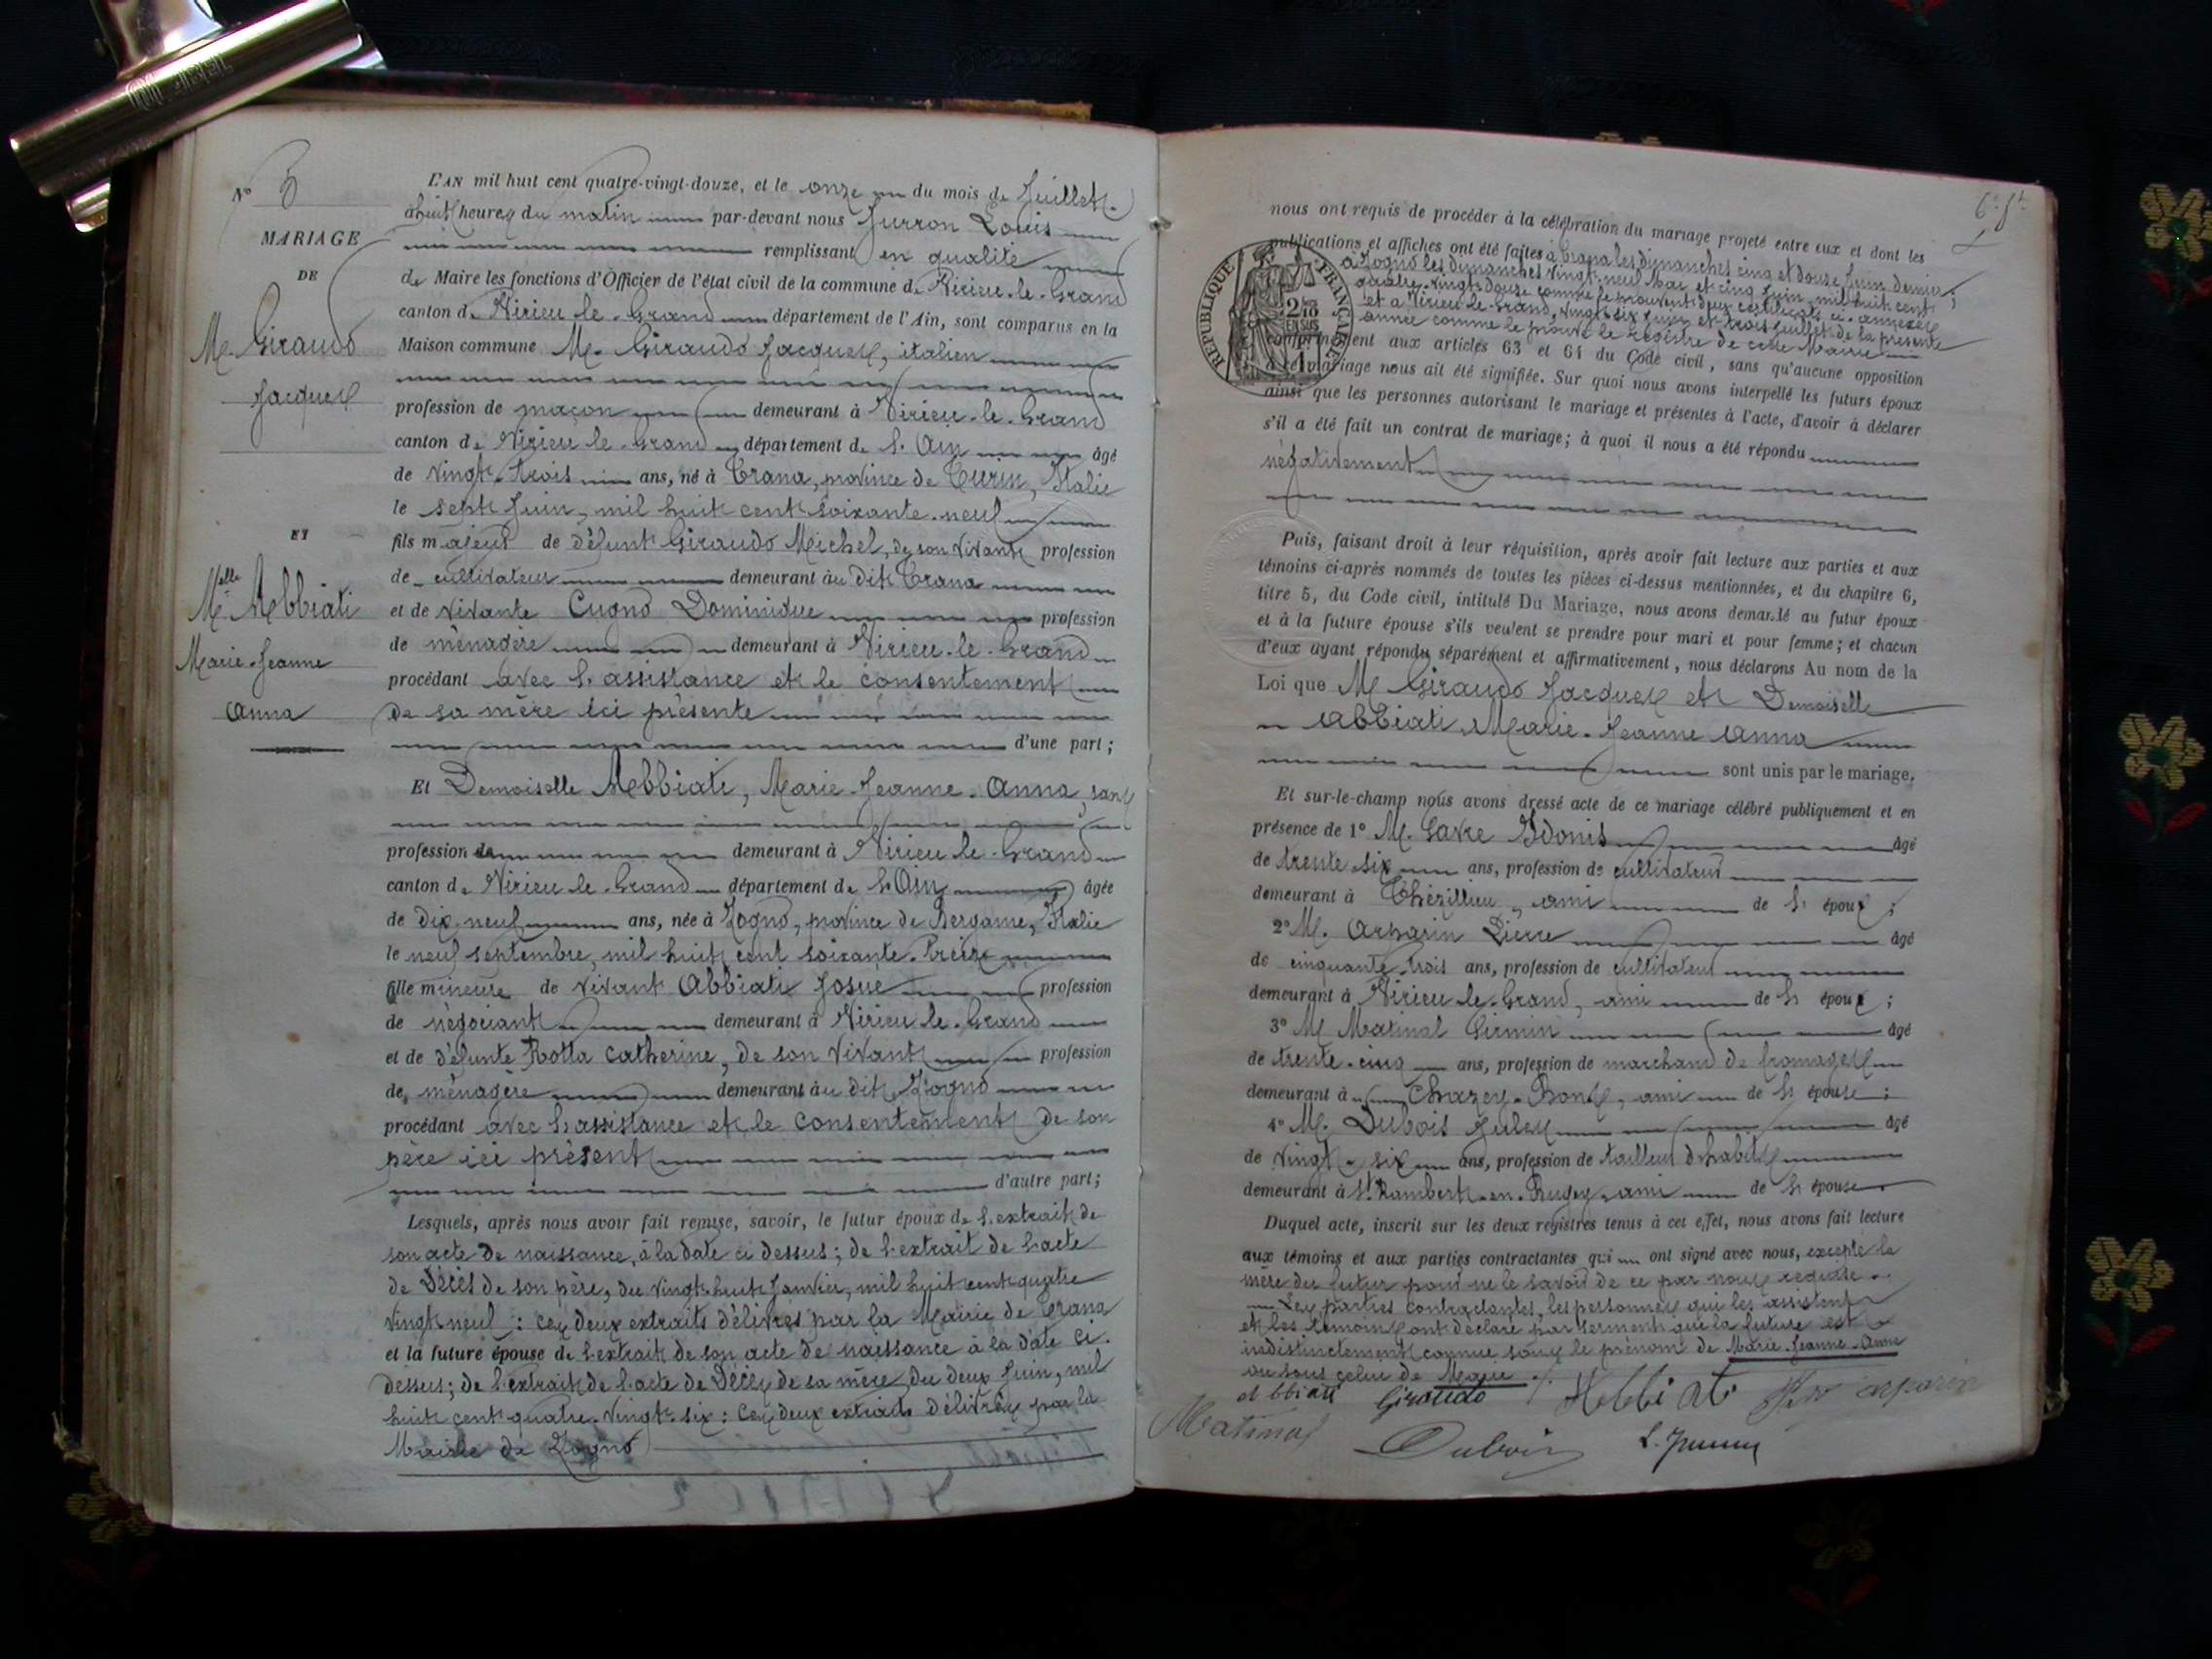 N° 5
MARIAGE
DE
M. Giraudo
Jacques
ET
Melle
Abbiati
Marie-Jeanne
Anna
L'AN mil huit cent quatre-vingt-douze, et le onze du mois de Juillet
à huit heures du matin par-devant nous Jurron Louis
remplissant en qualité
de Maire les fonctions d'Officier de l'état civil de la commune de Virieu-le-Grand
canton de Virieu-le-Grand département de l'Ain, sont comparus en la
Maison commune M. Giraudo Jacques, italien
profession de maçon demeurant à Virieu-le-Grand
canton de Virieu-le-Grand département de l'Ain âgé
de vingt-trois ans, né à Trana, province de Turin, Italie
le sept Juin, mil huit cent soixante-neuf
fils majeur de défunt Giraudo Michel, de son vivant profession
de cultivateur demeurant au dit Trana
et de vivante Cugno Dominique profession
de ménagère demeurant à Virieu-le-Grand
procédant avec l'assistance et le consentement
de sa mère ici présente
d'une part;
Et Demoiselle Abbiati, Marie-Jeanne-Anna, sans
profession demeurant à Virieu-le-Grand
canton de Virieu-le-Grand département de l'Ain âgée
de dix-neuf ans, née à Zogno, province de Bergame, Italie
le neuf septembre, mil huit cent soixante-treize
fille mineure de vivant Abbiati Josué profession
de négociant demeurant à Virieu-le-Grand
et de défunte Rotta Catherine, de son vivant profession
de ménagère demeurant au dit Zogno
procédant avec l'assistance et le consentement de son
père ici présent
d'autre part;
Lesquels, après nous avoir fait remise, savoir, le futur époux de l'extrait de
son acte de naissance, à la date ci dessus; de l'extrait de l'acte
de Décès de son père, du vingt-huit Janvier, mil huit cent quatre
vingt-neuf : ces deux extraits délivrés par la Mairie de Trana
et la future épouse de l'extrait de son acte de naissance à la date ci-
dessus; de l'extrait de l'acte de Décès de sa mère, du deux Juin, mil
huit cent quatre-vingt-six : ces deux extraits délivrés par la
Mairie de Zogno
nous ont requis de procéder à la célébration du mariage projeté entre eux et dont les
publications et affiches ont été faites à Trana les dimanches cinq et douze Juin dernier;
à Zogno les dimanches vingt-neuf Mai et cinq Juin, mil huit cent
quatre-vingt-douze comme le prouvent deux certificats ci-annexés
et à Virieu-le-Grand, vingt-six Juin et trois Juillet de la présente
année comme le prouve le registre de cette Mairie
conformément aux articles 63 et 64 du Code civil, sans qu'aucune opposition
à ce mariage nous ait été signifiée. Sur quoi nous avons interpellé les futurs époux
ainsi que les personnes autorisant le mariage et présentes à l'acte, d'avoir à déclarer
s'il a été fait un contrat de mariage; à quoi il nous a été répondu
négativement
RÉPUBLIQUE FRANÇAISE
2/10 EN SUS
Puis, faisant droit à leur réquisition, après avoir fait lecture aux parties et aux
témoins ci-après nommés de toutes les pièces ci-dessus mentionnées, et du chapitre 6,
titre 5, du Code civil, intitulé Du Mariage, nous avons demandé au futur époux
et à la future épouse s'ils veulent se prendre pour mari et pour femme; et chacun
d'eux ayant répondu séparément et affirmativement, nous déclarons Au nom de la
Loi que M. Giraudo Jacques et Demoiselle
Abbiati, Marie-Jeanne Anna
sont unis par le mariage.
Et sur-le-champ nous avons dressé acte de ce mariage célébré publiquement et en
présence de 1° M. Savre Idonis âgé
de trente-six ans, profession de cultivateur
demeurant à Thézillieu, ami de l'époux;
2° M. Arparin Pierre âgé
de cinquante-trois ans, profession de cultivateur
demeurant à Virieu-le-Grand, ami de l'époux;
3° M. Matinal Firmin âgé
de trente-cinq ans, profession de marchand de fromages
demeurant à Chazey-Bons, ami de l'épouse;
4° M. Dubois Jules âgé
de vingt-six ans, profession de tailleur d'habits
demeurant à St Rambert-en-Bugey, ami de l'épouse
Duquel acte, inscrit sur les deux registres tenus à cet effet, nous avons fait lecture
aux témoins et aux parties contractantes qui ont signé avec nous, excepté la
mère du futur pour ne le savoir de ce par nous requise.
Les parties contractantes, les personnes qui les assistent
et les témoins ont déclaré par serment que la future est
indistinctement connue sous le prénom de Marie-Jeanne-Anna
ou sous celui de Marie.
Abbiati Giraudo Abbiati arparin
Matinal Dubois L. Jurron